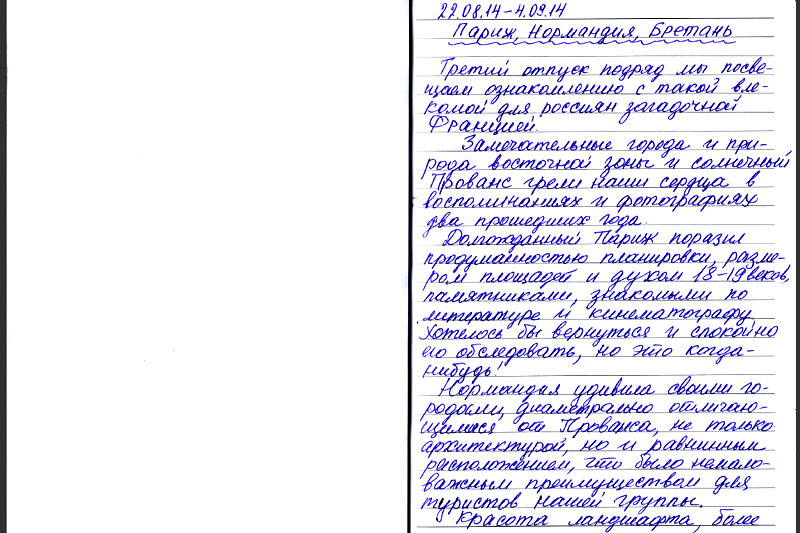 22.08.14-4.09.14
Париж, Нормандия, Бретань
Третий отпуск подряд мы посве-
щаем ознакомлению с такой вле-
комой для россиян загадочной
Францией.
Замечательные города и при-
рода восточной зоны и солнечный
Прованс грели наши сердца в
воспоминаниях и фотографиях
два прошедших года.
Долгожданный Париж поразил
продуманностью планировки, разме-
ром площадей и духом 18-19 веков,
памятниками, знакомыми по
литературе и кинематографу.
Хотелось бы вернуться и спокойно
его обследовать, но это когда-
нибудь!
Нормандия удивила своими го-
родами, диаметрально отличаю-
щимися от Прованса, не только
архитектурой, но и равнинным
расположением, что было немало-
важным преимуществом для
туристов нашей группы.
Красота ландшафта, более